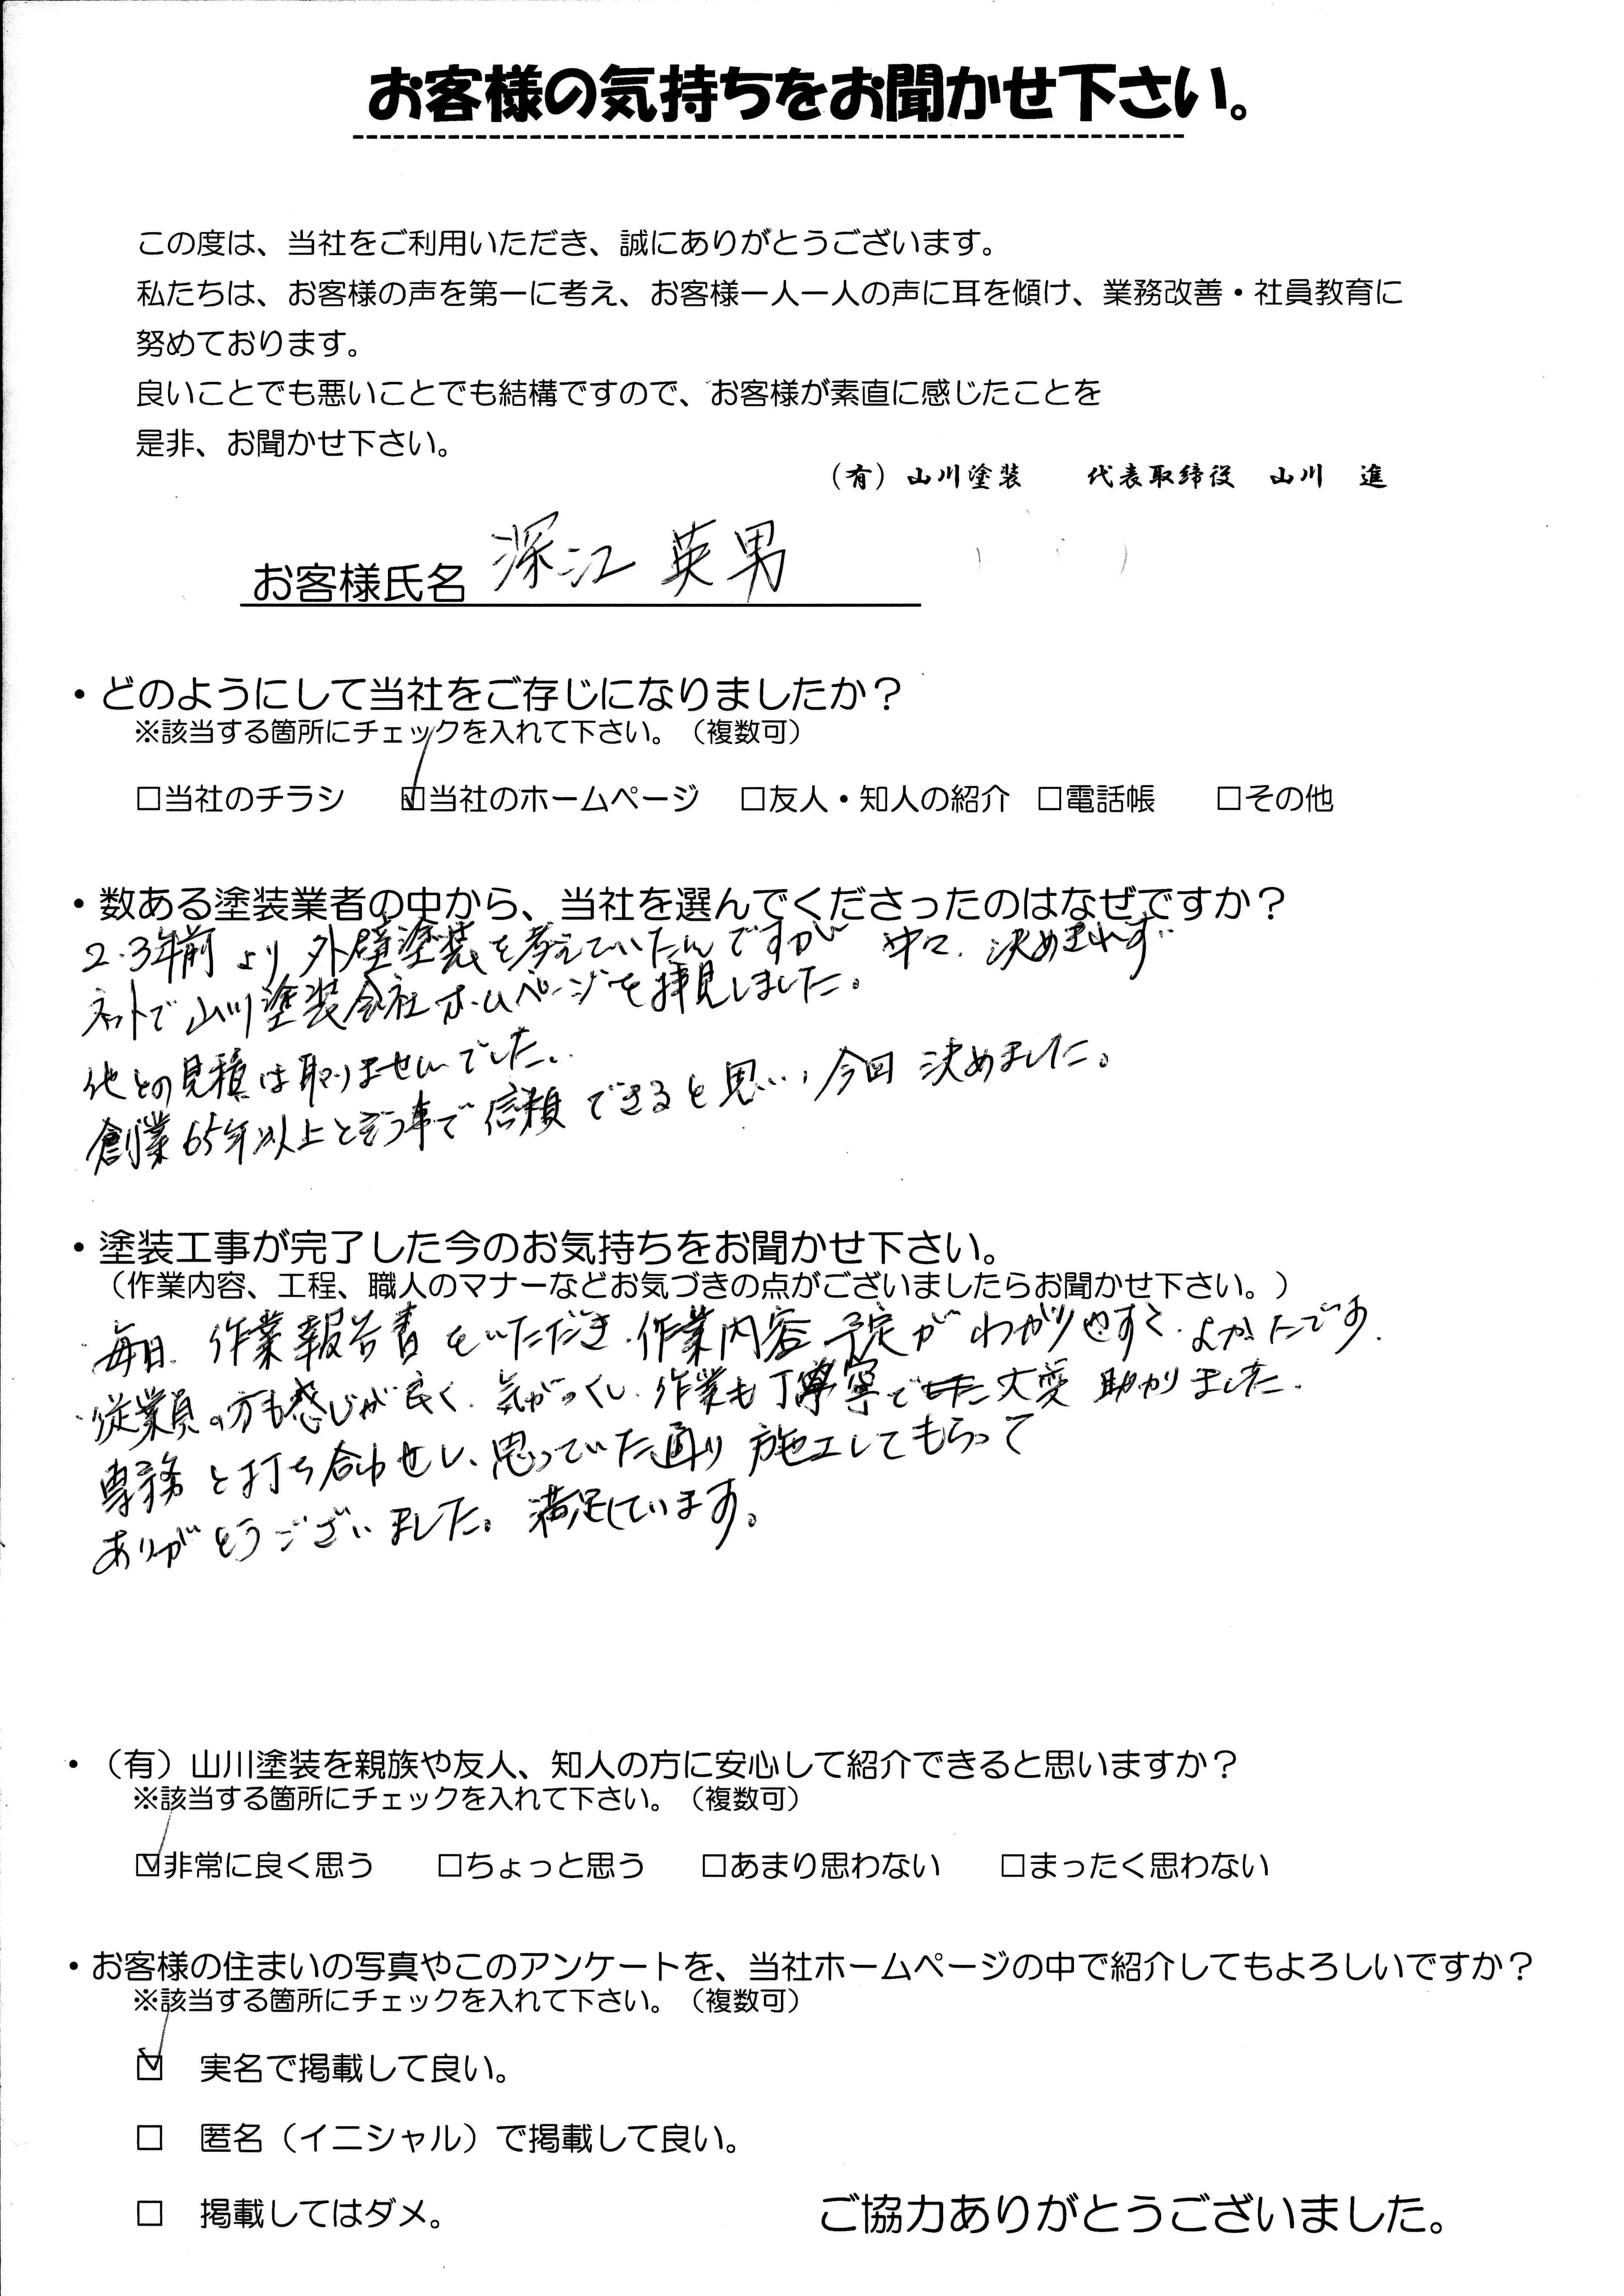 お客様の気持ちをお聞かせ下さい。
この度は、当社をご利用いただき、誠にありがとうございます。
私たちは、お客様の声を第一に考え、お客様一人一人の声に耳を傾け、業務改善・社員教育に
努めております。
良いことでも悪いことでも結構ですので、お客様が素直に感じたことを
是非、お聞かせ下さい。
(有)山川塗装 代表取締役 山川 進
お客様氏名 深江 英男
・どのようにして当社をご存じになりましたか？
※該当する箇所にチェックを入れて下さい。（複数可）
□当社のチラシ ☑当社のホームページ □友人・知人の紹介 □電話帳 □その他
・数ある塗装業者の中から、当社を選んでくださったのはなぜですか？
2.3年前より外壁塗装を考えていたんですが 中々、決めきれず
ネットで山川塗装会社ホームページを拝見しました。
他との見積は取りませんでした。
創業65年以上と言う事で信頼できると思い、今回決めました。
・塗装工事が完了した今のお気持ちをお聞かせ下さい。
（作業内容、工程、職人のマナーなどお気づきの点がございましたらお聞かせ下さい。）
毎日、作業報告書をいただき、作業内容 予定がわかりやすく、よかったです.
従業員の方も感じが良く、気がつくし、作業も丁寧でした大変助かりました.
専務と打ち合わせし、思っていた通り施工してもらって
ありがとうございました。満足しています。
・（有）山川塗装を親族や友人、知人の方に安心して紹介できると思いますか？
※該当する箇所にチェックを入れて下さい。（複数可）
☑非常に良く思う □ちょっと思う □あまり思わない □まったく思わない
・お客様の住まいの写真やこのアンケートを、当社ホームページの中で紹介してもよろしいですか？
※該当する箇所にチェックを入れて下さい。（複数可）
☑ 実名で掲載して良い。
□ 匿名（イニシャル）で掲載して良い。
□ 掲載してはダメ。
ご協力ありがとうございました。